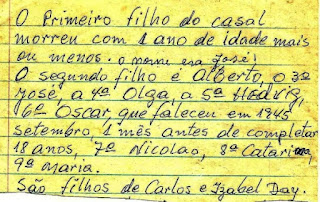 O Primeiro filho do casal
morreu com 1 ano de idade mais
ou menos. o nome era José!
O segundo filho é Alberto, o 3º
José, a 4ª Olga, a 5ª Hedvig,
6º Oscar, que faleceu em 1945
setembro 1 mês antes de completar
18 anos, 7º Nicolao, 8ª Catarina,
9ª Maria.
São filhos de Carlos e Izabel Day.